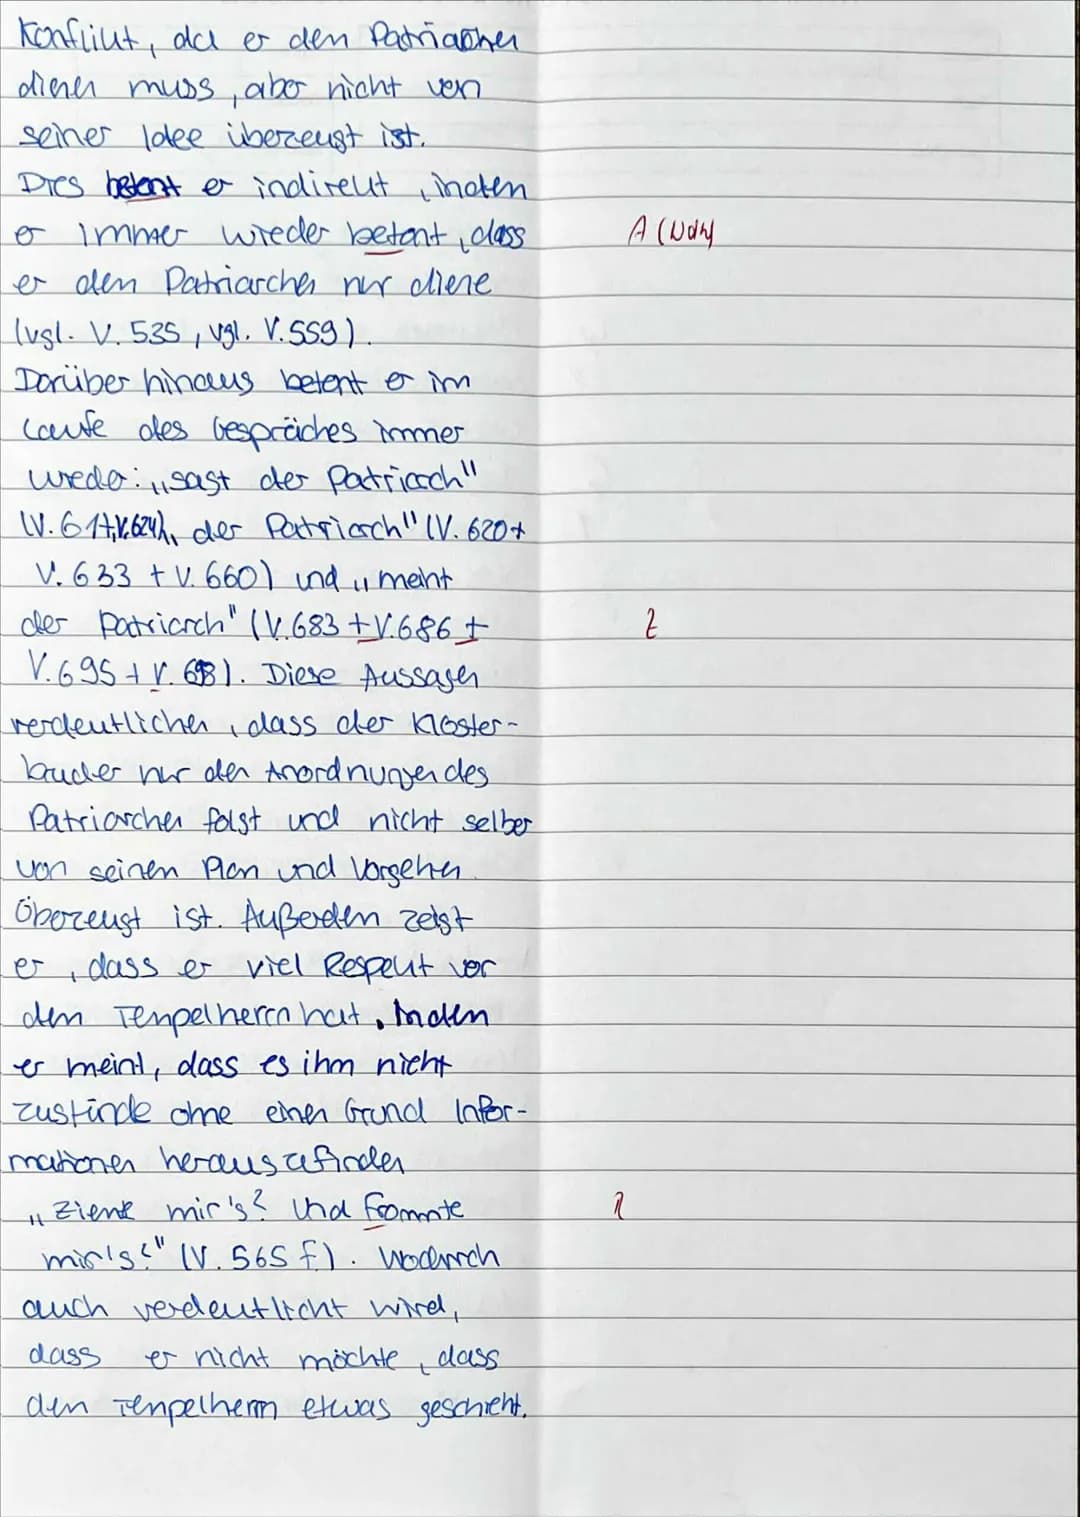 Konflikt, da er den Patriarchen
dienen muss, aber nicht von
seiner Idee überzeugt ist.
Dies betont er indirekt, indem
er immer wieder betont, dass
A (Wdh)
er dem Patriarchen nur diene
(vgl. V. 535, vgl. V. 559).
Darüber hinaus betont er im
Laufe des Gespräches immer
wieder: „sagt der Patriarch"
der Patriarch" (V. 620 +
V. 633 + V. 660) und „meint
der Patriarch" (V. 683 + V. 686 +
Z
V. 695 + V. 698). Diese Aussagen
verdeutlichen, dass der Kloster-
bruder nur den Anordnungen des
Patriarchen folgt und nicht selber
von seinem Plan und Vorgehen
Überzeugt ist. Außerdem zeigt
er, dass er viel Respekt vor
dem Tempelherrn hat, Indem
er meint, dass es ihm nicht
zustünde ohne einen Grund Infor-
mationen herauszufinden
„Ziemt mir's? Und Frommte
mir's?" (V. 565 f). Wodurch
auch verdeutlicht wird,
dass er nicht möchte, dass
dem Tempelherrn etwas geschieht.